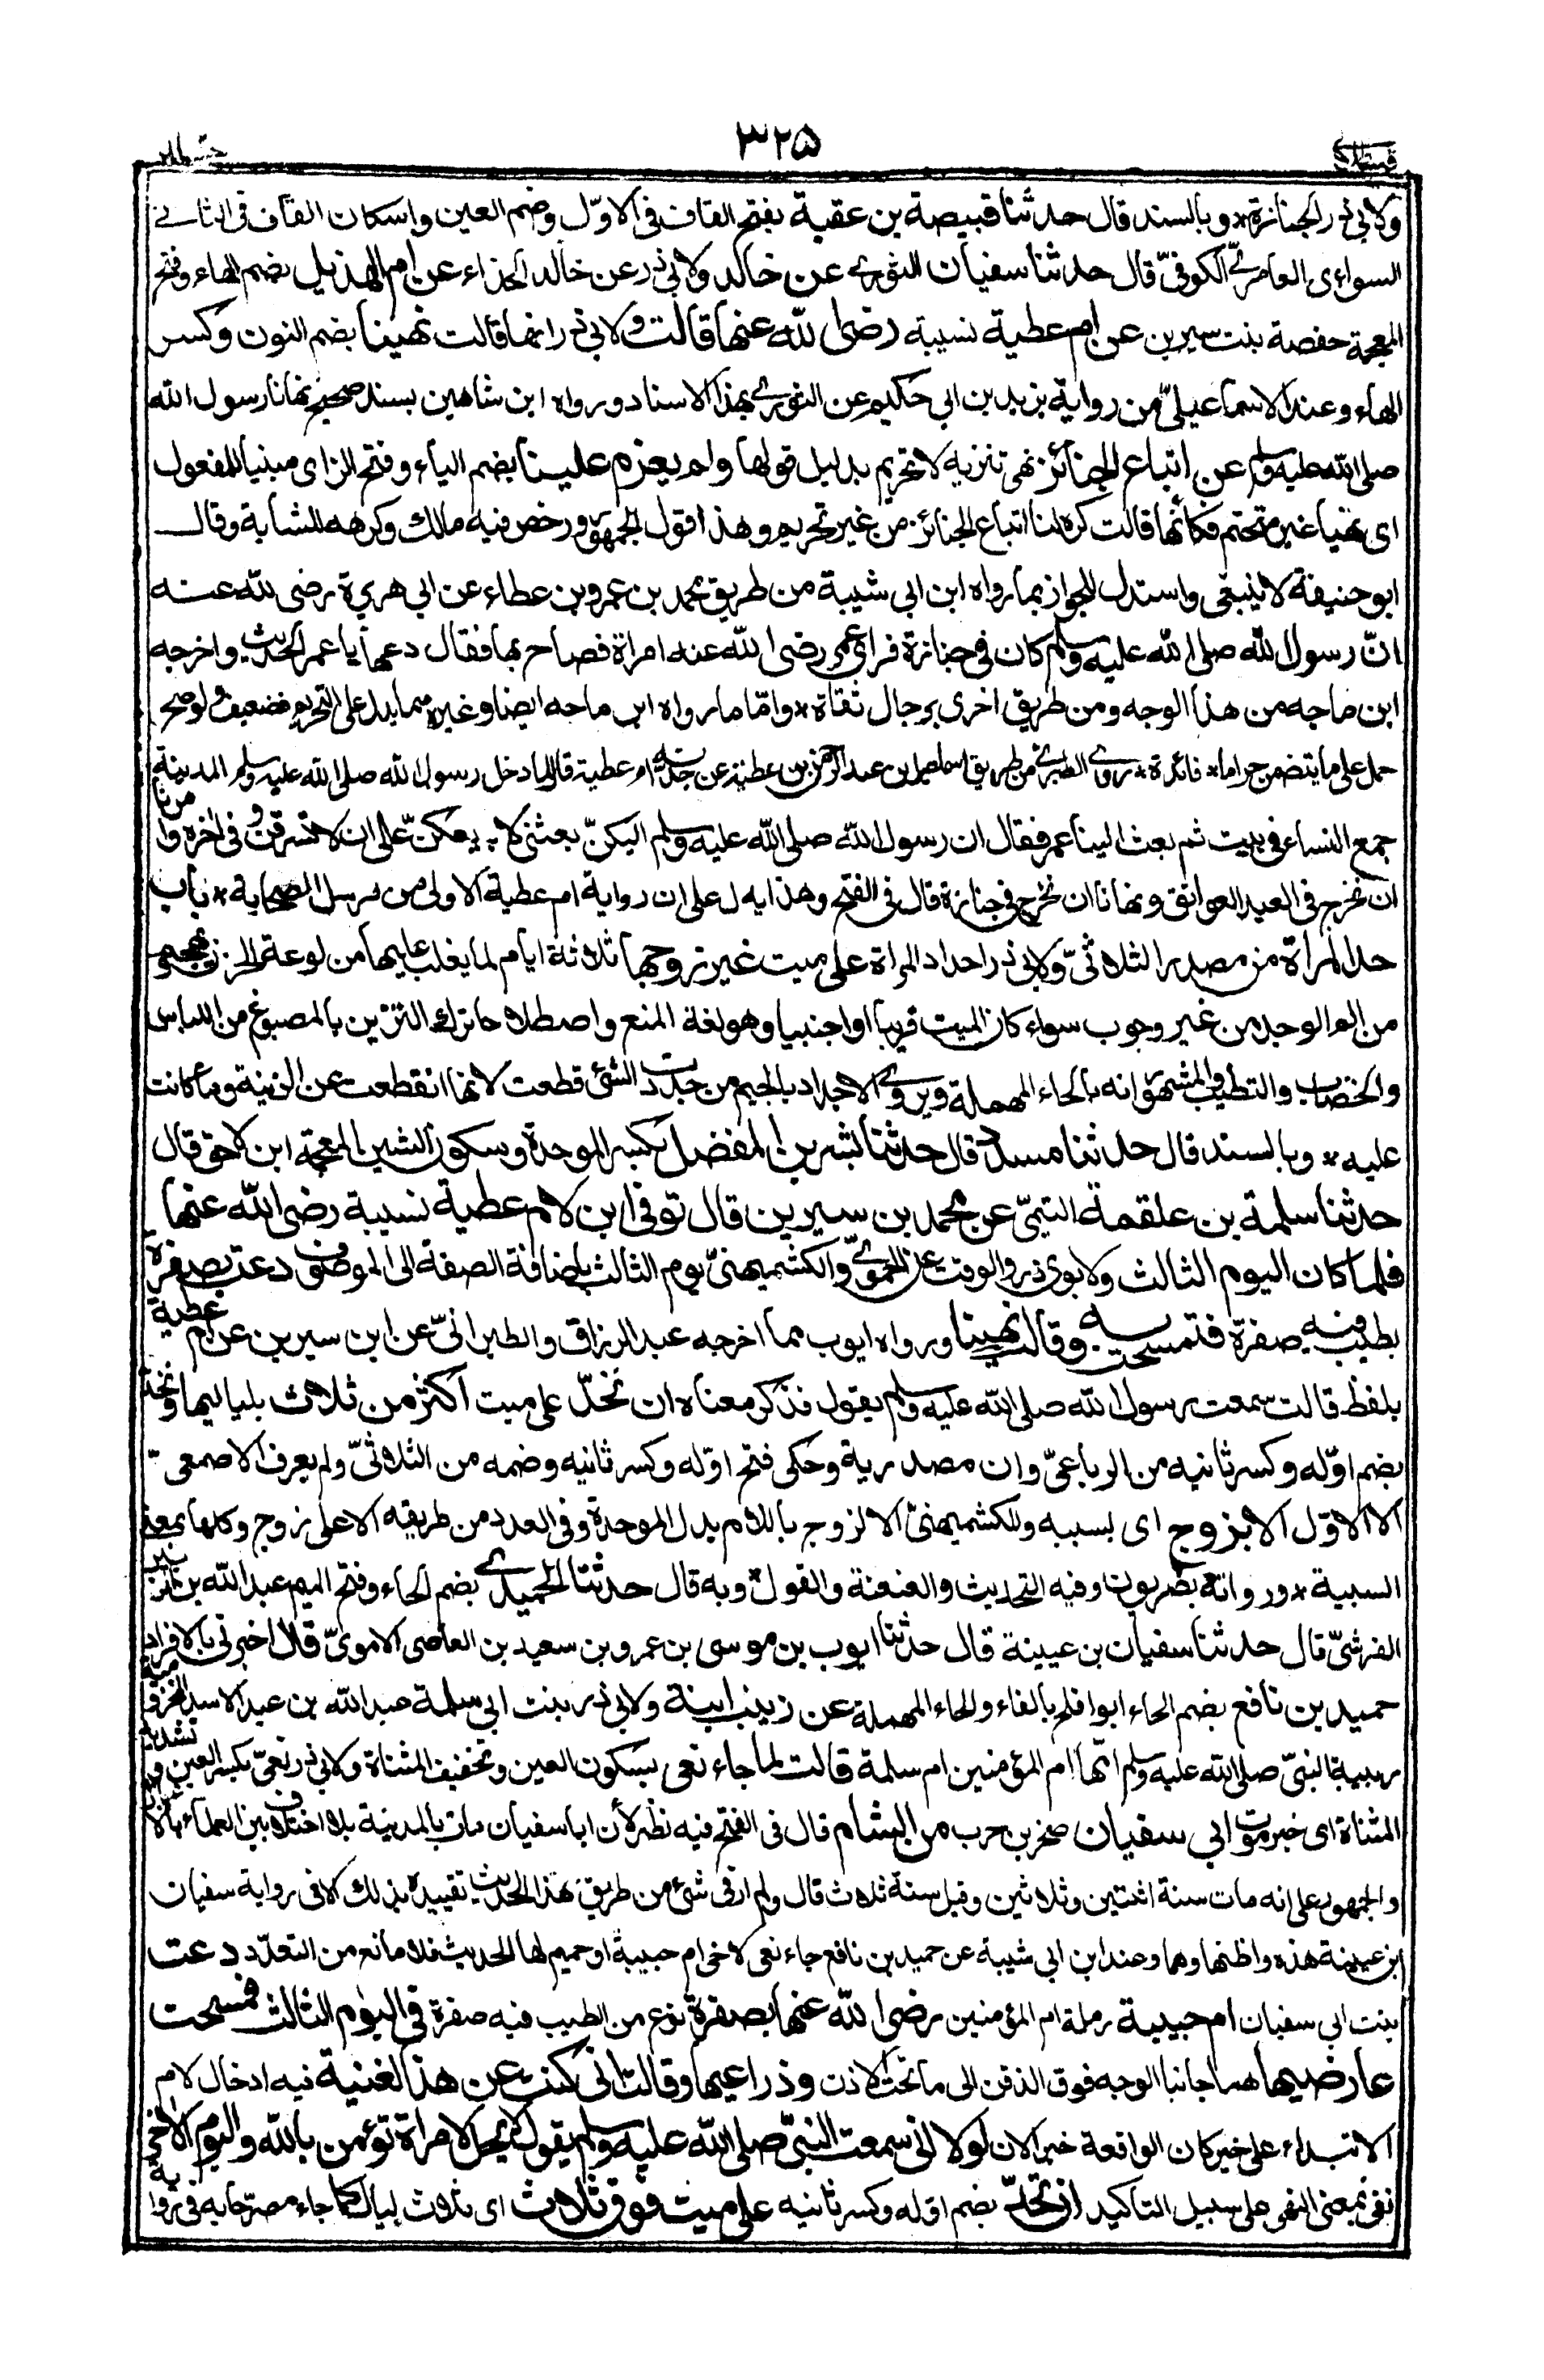 قسطلانی
٣٢٥
ولابي ذر الجنازة * وبالسند قال حدثنا قبيصة بن عقبة بفتح القاف فى الاوّل وضم العين واسكان القاف فى الثانے
السواءى العامرىّ الكوفىّ قال حدثنا سفيان الثورے عن خالد ولابي ذر عن خالد الحذاء عن ام الهذيل بضم الهاء وفتح
المعجمة حفصة بنت سيرين عن ام عطية نسيبة رضى الله عنها قالت ولابي ذر انها قالت نهينا بضم النون وكسر
الهاء وعند الاسماعيلىّ من رواية يزيد بن ابي حكيم عن الثورے بهذا الاسناد ورواه ابن شاهين بسند صحيح نهانا رسول الله
صلى الله عليه وسلم عن اتباع الجنائز نهى تنزيه لا تحريم بدليل قولها ولم يعزم علينا بضم الياء وفتح الزاى مبنيا للمفعول
اى نهيا غير متحتم فكانها قالت كره لنا اتباع الجنائز من غير تحريم وهذا قول الجمهور ورخص فيه مالك وكرهه للشابة وقال
ابو حنيفة لا ينبغى واستدل للجواز بما رواه ابن ابي شيبة من طريق محمد بن عمرو بن عطاء عن ابي هريرة رضى الله عنه
انّ رسول الله صلى الله عليه وسلم كان فى جنازة فراى عمر رضى الله عنه امراة فصاح بها فقال دعها يا عمر الحديث واخرجه
ابن ماجه من هذا الوجه ومن طريق اخرى برجال ثقاة * وامّا ما رواه ابن ماجه ايضا وغيره مما يدل على التحريم فضعيف ولو صح
حمل على ما يتضمن حراما * فائدة * روى الطبرے من طريق اسماعيل بن عبد الرحمن بن عطية عن جدته ام عطية قالت لما دخل رسول الله صلى الله عليه وسلم المدينة
جمع النساء فى بيت ثم بعث الينا عمر فقال ان رسول الله صلى الله عليه وسلم اليكنّ بعثنى لابايعكنّ على ان لا تسرقن وفى اخره وامرنا
ان نخرج فى العيد العواتق ونهانا ان نخرج فى جنازة قال فى الفتح وهذا يدل على ان رواية ام عطية الاولى من مرسل الصحابة * باب
حد المرأة من مصدر الثلاثىّ ولابي ذر احداد المراة على ميت غير زوجها ثلاثة ايام لما يغلب عليها من لوعة الحزن ويهجم
من الم الوجد من غير وجوب سواء كان الميت قريبا او اجنبيا وهو لغة المنع واصطلاحا ترك التزين بالمصبوغ من اللباس
والخضاب والتطيب والمشهور انه بالحاء المهملة ويروى الاجداد بالجيم من جددت الشئ قطعت لانها انقطعت عن الزينة وما كانت
عليه * وبالسند قال حدثنا مسدد قال حدثنا بشر بن المفضل بكسر الموحدة وسكون الشين المعجمة ابن لاحق قال
حدثنا سلمة بن علقمة التيمىّ عن محمد بن سيرين قال توفى ابن لام عطية نسيبة رضى الله عنها
فلما كان اليوم الثالث ولابوى ذر والوقت عن الحموىّ والكشميهنىّ يوم الثالث باضافة الصفة الى الموصوف دعت بصفرة
بطيب فيه صفرة فتمسحت به وقالت نهينا ورواه ايوب مما اخرجه عبد الرزاق والطبرانىّ عن ابن سيرين عن ام عطية
بلفظ قالت سمعت رسول الله صلى الله عليه وسلم يقول فذكر معناه ان نحدّ على ميت اكثر من ثلاث بلياليها ونحدّ
بضم اوّله وكسر ثانيه من الرباعىّ وان مصدرية وحكى فتح اوّله وكسر ثانيه وضمه من الثلاثىّ ولم يعرف الاصمعى
الا الاوّل الا بزوج اى بسببه وللكشميهنىّ الا لزوج باللام بدل الموحدة وفى العدد من طريقه الا على زوج وكلها بمعنى
السببية * ورواته بصريون وفيه التحديث والعنعنة والقول * وبه قال حدثنا الحميدے بضم الحاء وفتح الميم عبد الله بن الزبير
القرشىّ قال حدثنا سفيان بن عيينة قال حدثنا ايوب بن موسى بن عمرو بن سعيد بن العاصى الاموىّ قال اخبرنى بالافراد
حميد بن نافع بضم الحاء ابو افلح بالفاء والحاء المهملة عن زينب ابنة ولابي ذر بنت ابي سلمة عبد الله بن عبد الاسد المخزومية
ربيبة النبىّ صلى الله عليه وسلم امّها ام المؤمنين ام سلمة قالت لما جاء نعى بسكون العين وتخفيف المثناة ولابي ذر نعىّ بكسر العين وتشديد
المثناة اى خبر موت ابي سفيان صخر بن حرب من الشام قال فى الفتح فيه نظر لأن ابا سفيان مات بالمدينة بلا اختلاف بين العلماء بالاخبار
والجمهور على انه مات سنة اثنتين وثلاثين وقيل سنة ثلاث قال ولم ار فى شئ من طريق هذا الحديث تقييده بذلك الا فى رواية سفيان
بن عيينة هذه واظنها وهما وعند ابن ابي شيبة عن حميد بن نافع جاء نعى لاخى ام حبيبة او حميم لها الحديث فلا مانع من التعدّد دعت
بنت ابي سفيان ام حبيبة رملة ام المؤمنين رضى الله عنها بصفرة نوع من الطيب فيه صفرة فى اليوم الثالث فمسحت
عارضيها هما جانبا الوجه فوق الذقن الى ما تحت الاذن وذراعيها وقالت انى كنت عن هذا لغنية فيه ادخال لام
الابتداء على خبر كان الواقعة خبر الان لولا انى سمعت النبىّ صلى الله عليه وسلم يقول لا يحل لامراة تؤمن بالله واليوم الاخر
نفى بمعنى النهى على سبيل التاكيد ان تحدّ بضم اوّله وكسر ثانيه على ميت فوق ثلاث اى ثلاث ليال كما جاء مصرّحا به فى رواية